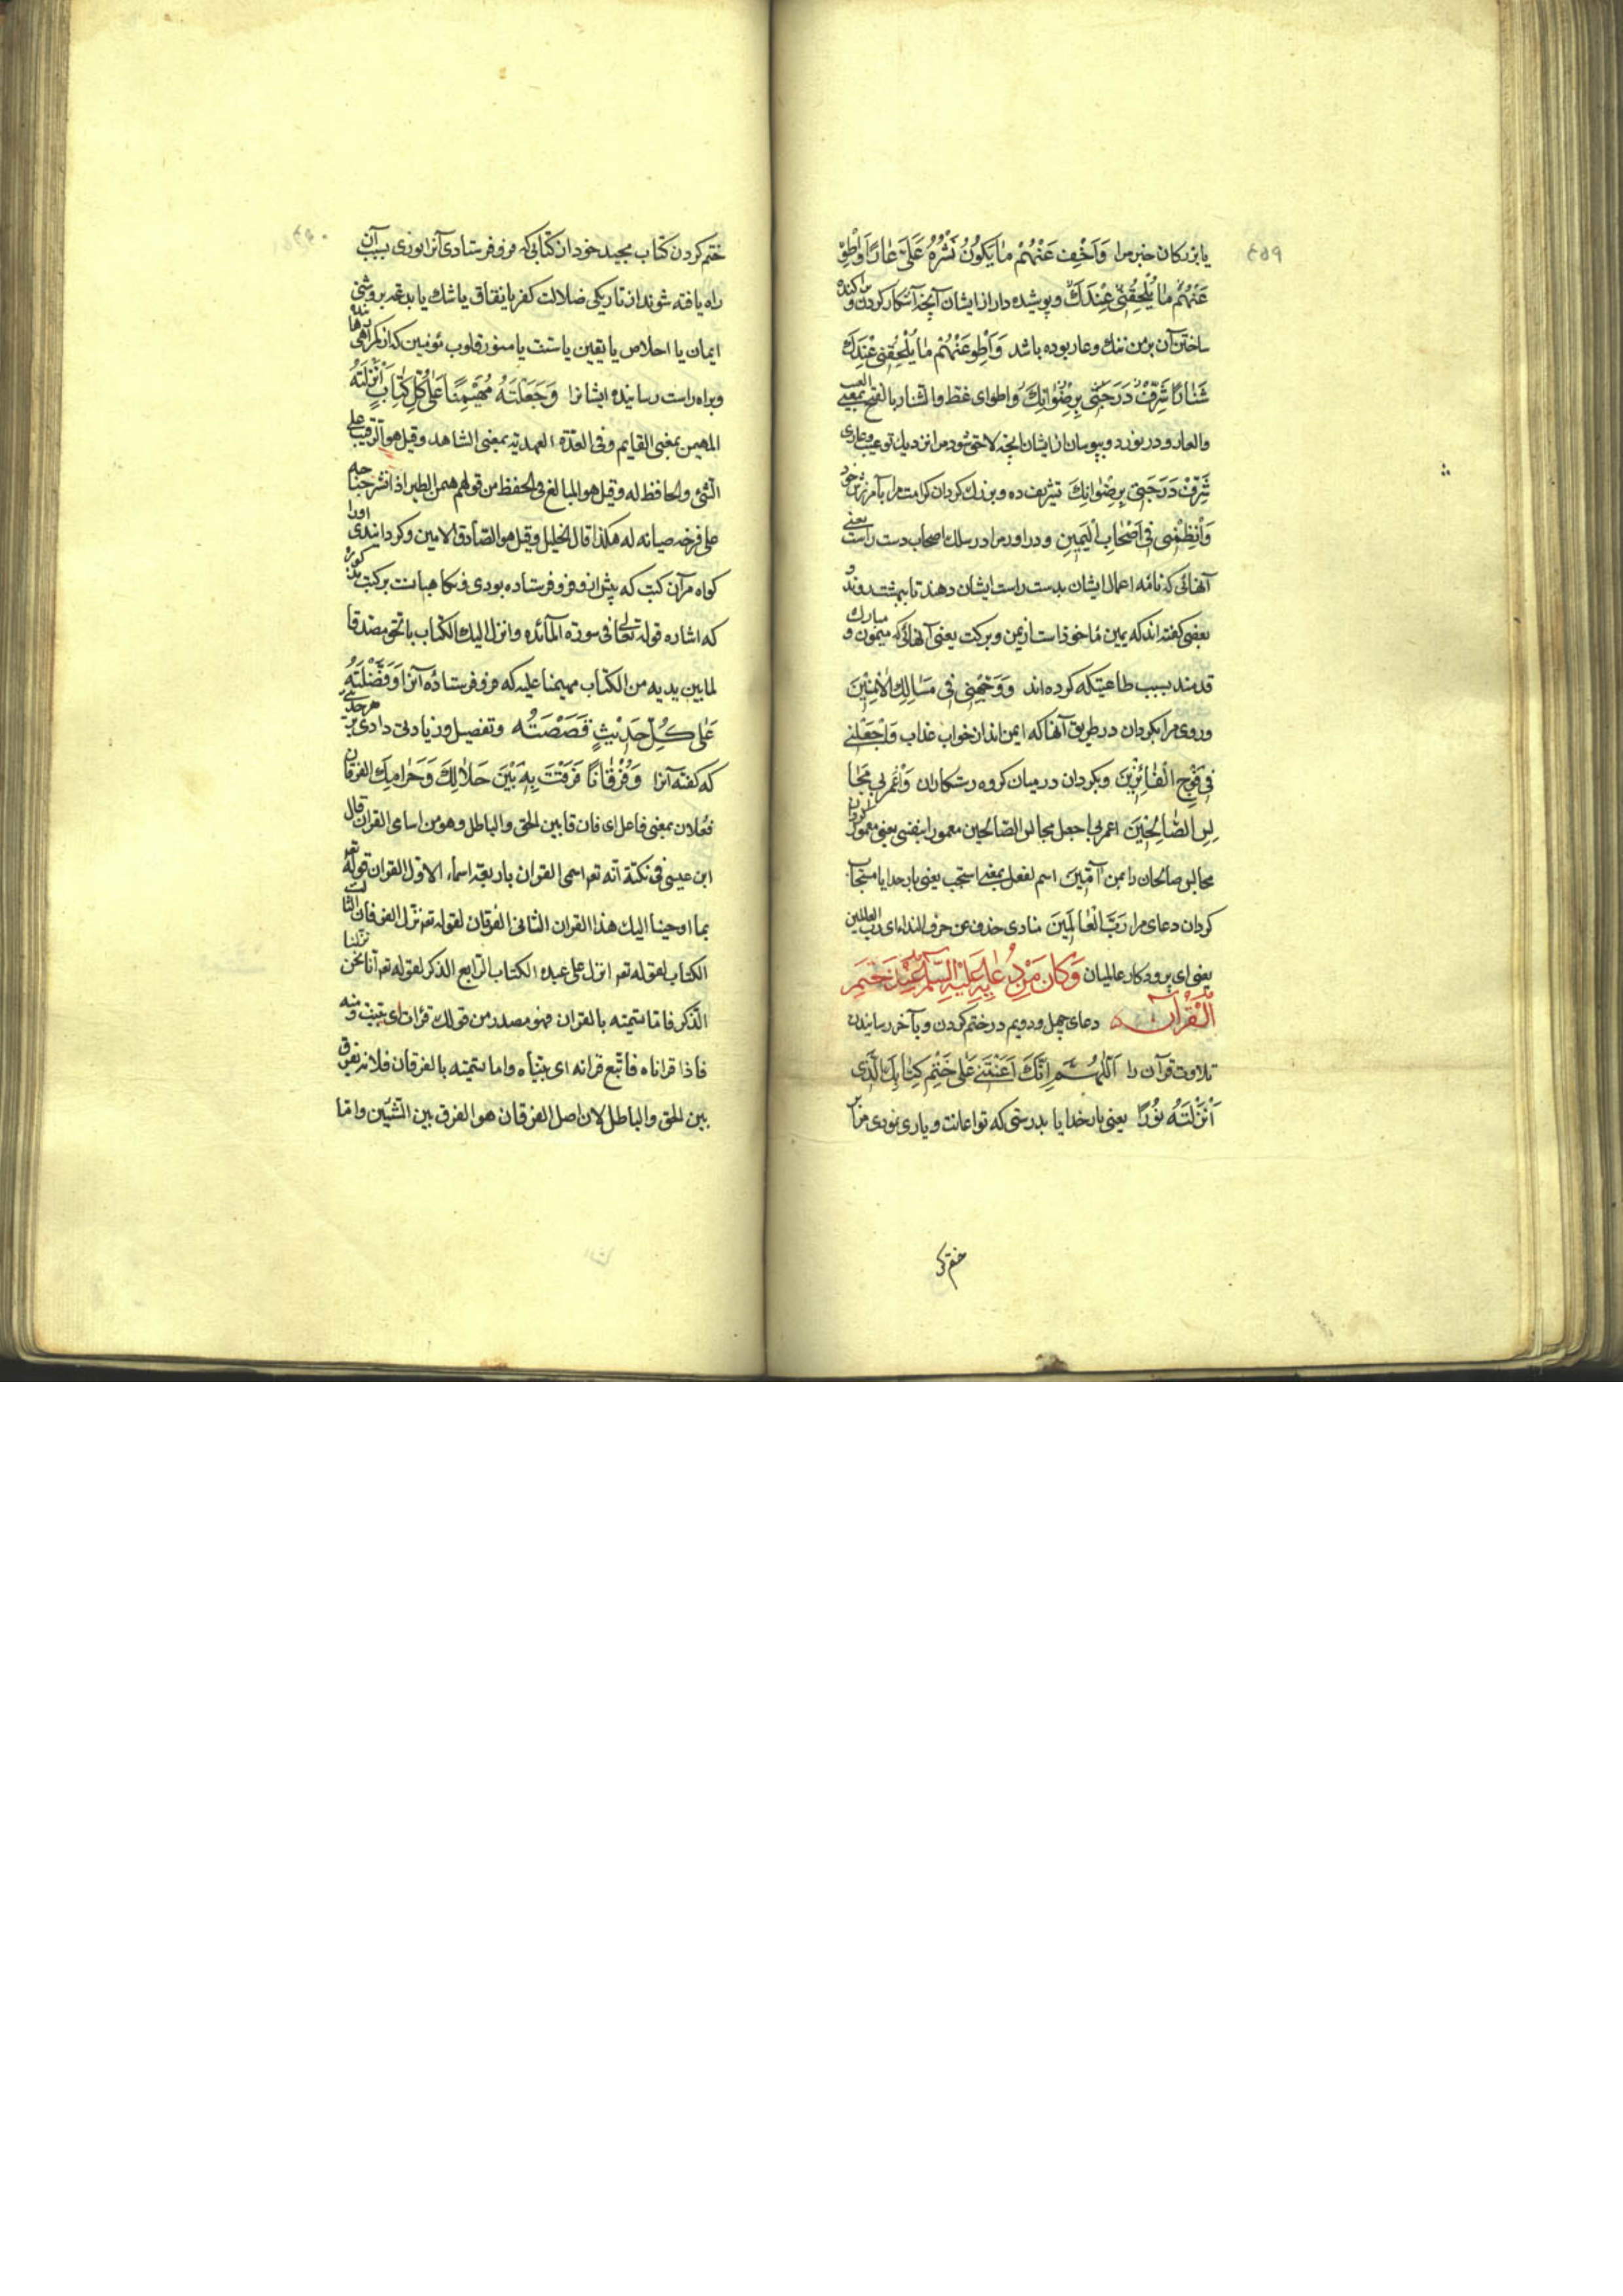 یا بزرکان خبر مرا وَاَخْفِ عَنْهُمْ مٰا یَکُونُ نَشْرُهُ عَلَیَّ عٰارًا وَاطْوِ
عَنْهُمْ مٰا یُلْحِقُنی عِنْدَكَ و پوشیده دار از ایشان آنچه آشکار کردن و پراکنده
ساختن آن بر من ننك و عار بوده باشد وَاَطْوِ عَنْهُمْ مٰا یُلْحِقُنی عِنْدَكَ
شَنٰارًا شَرِّفْ دَرَجَتی بِرِضْوٰانِكَ واطو ای غط والشنار بالفتح بمعنی العیب
والعار و در نورد و بپوسان از ایشان انچه لاحق شود مرا نزدیك تو عیب و عاری
شَرِّفْ دَرَجَتی بِرِضْوٰانِكَ تشریف ده و بزرك کردان کرامت مرا بآمرزش خود
وَانْظِمْنی فی اَصْحٰابِ الْیَمینِ و دراور مرا در سلك اصحاب دست راست یعنی
آنهائی که نامه اعمال ایشان بدست راست ایشان دهند تا ببهشت روند و
بعضی کفته اند که یمین ماخوذ است از یمن و برکت یعنی آنهائی که میمون و مبارك
قدمند بسبب طاعتیکه کرده اند وَوَجِّهْنی فی مَسٰالِكِ الْاٰمِنینَ
و روی مرا بکردان در طریق آنها که ایمن اند از خواب عذاب وَاجْعَلْنی
فی فَوْجِ الْفٰائِزینَ و بکردان در میان کروه رستکاران وَاعْمُرْ بی مَجٰا
لِسَ الصّٰالِحینَ اعمر بی اجعل مجالس الصّالحین معمورا بنفسی یعنی معمور کردان
مجالس صالحان را بمن آمّینَ اسم لفعل بمعنی استجب یعنی بار خدایا مستجاب
کردان دعای مرا رَبَّ الْعٰالَمینَ منادی حذف عن حرف النداء ای رب العالمین
یعنی ای پروردکار عالمیان وَکٰانَ مِنْ دُعٰائِهِ عَلَیْهِ السَّلٰام عِنْدَ خَتْمِ
الْقُرْآنِ دعای چهل و دویم در ختم کردن و بآخر رسانیدن
تلاوت قرآن را اَللّٰهُمَّ اِنَّكَ اَعَنْتَنی عَلٰی خَتْمِ کِتٰابِكَ الَّذی
اَنْزَلْتَهُ نُورًا یعنی بار خدایا بدرستی که تو اعانت و یاری نمودی مرا بر
ختم کر
ختم کردن کتاب مجید خود ان کتابی که فرو فرستادی آنرا نوری بسبب آن
راه یافته شوند از تاریکی ضلالت کفر یا نفاق یا شك یا بدعت بروشنی
ایمان یا اخلاص یا یقین یا سنت یا منور قلوب مؤمنین که از کمراهی
و براه راست رسانیده ایشانرا وَجَعَلْتَهُ مُهَیْمِنًا عَلٰی کُلِّ کِتٰابٍ اَنْزَلْتَهُ
المهیمن بمعنی القایم وفی العدّة الفهدیّه بمعنی الشاهد وقیل هو الرّقیب علی
الشّئ والحافظ له وقیل هو المبالغ فی الحفظ من قولهم همن الطیر اذا نشر جناحه
علی فرخه صیانه له هکذا قال الخلیل وقیل هو الصّادق الامین و کردانیدی اورا
کواه مرآن کتب که پیش ازو فرو فرستاده بودی
که اشاره قوله تعالی فی سورة المآئده وانزلنا الیك الکتاب بالحق مصدقا
لما بین یدیه من الکتاب مهیمنا علیه که فرو فرستاده آنرا وَفَضَّلْتَهُ
عَلٰی کُلِّ حَدیثٍ قَصَصْتَهُ و تفضیل و زیادتی دادی بر هر حدیثی
که کفته آنرا وَفُرْقٰانًا فَرَقْتَ بِهِ بَیْنَ حَلٰالِكَ وَحَرٰامِكَ الفرقان
فعلان بمعنی فاعل ای فارقا بین الحق والباطل وهو من اسامی القران قال
ابن عیسی فی نکتة انه تعه اسمی القران باربعة اسماء الاوّل القران قوله تعه
بما اوحینا الیك هذا القران الثانی الفرقان لقوله تعه نزّل الفرقان الثالث
الکتاب لقوله تعه انزل علی عبده الکتاب الرّابع الذکر لقوله تعه انا نحن نزّلنا
الذّکر فامّا تسمیته بالقران فهو مصدر من قولك قرات ای بینت ومنه
فاذا قراناه فاتّبع قرانه ای بیّناه واما تسمیته بالفرقان فلانه یفرق
بین الحق والباطل لان اصل الفرقان هو الفرق بین الشّیئین وامّا